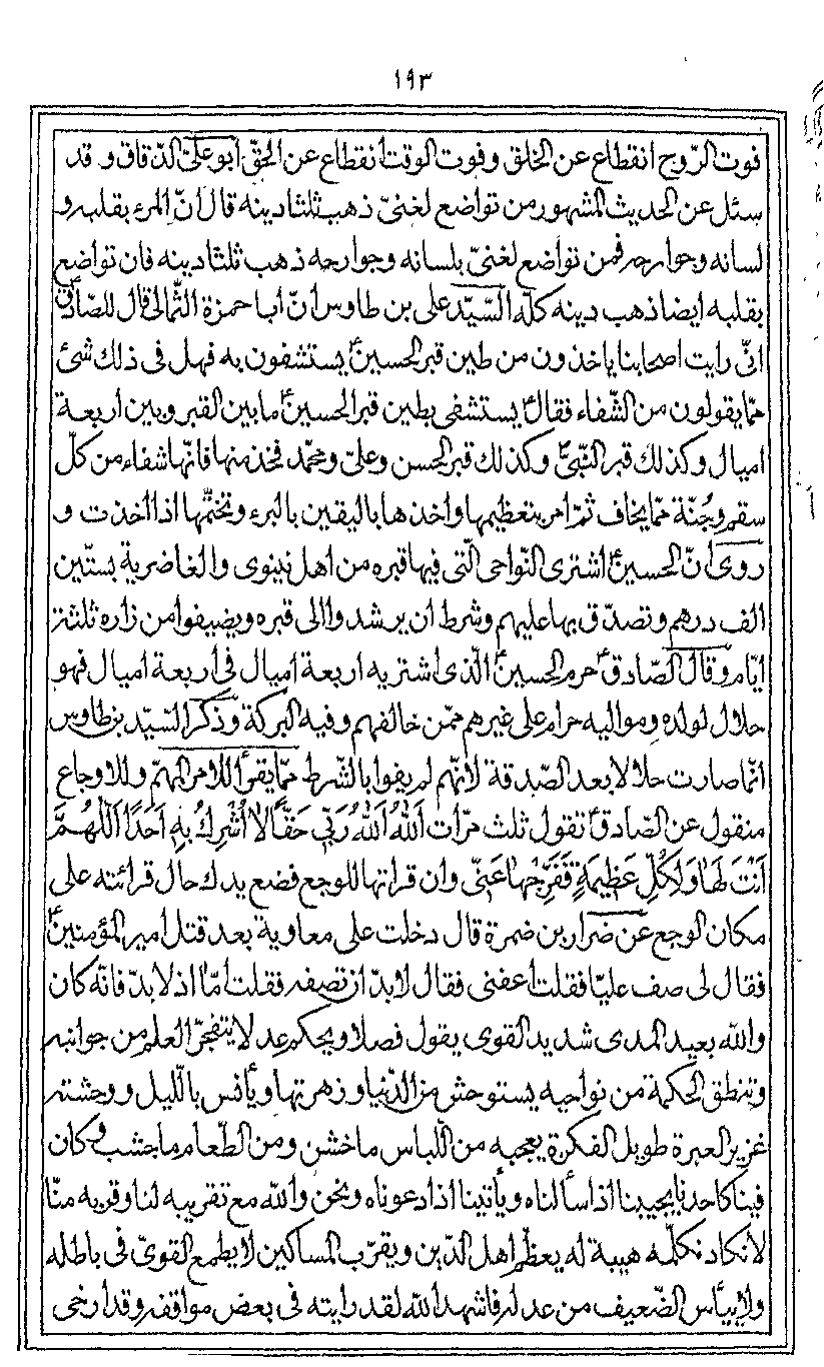 ١٩٣
فوت الرّوح انقطاع عن الخلق وفوت الوقت انقطاع عن الحقّ أبو علىّ الدّقاق وقد
سئل عن الحديث المشهور من تواضع لغنىّ ذهب ثلثا دينه قال انّ المرء بقلبه و
لسانه وجوارحه فمن تواضع لغنىّ بلسانه وجوارحه ذهب ثلثا دينه فان تواضع
بقلبه ايضا ذهب دينه كلّه السّيّد على بن طاوس أنّ أبا حمزة الثّمالى قال للصّادق
انّى رايت اصحابنا ياخذون من طين قبر الحسين ع يستشفون به فهل فى ذلك شئ
ممّا يقولون من الشّفاء فقال ع يستشفى بطين قبر الحسين ع ما بين القبر وبين اربعة
اميال وكذلك قبر النّبىّ ص وكذلك قبر الحسن وعلىّ ومحمّد فخذ منها فانّها شفاء من كلّ
سقم وجُنّة ممّا يخاف ثمّ امر بتعظيمها واخذها باليقين بالبرء وتختمّها اذا اخذت و
روى أنّ الحسين ع اشترى النّواحى الّتى فيها قبره من اهل نينوى والغاضرية بستّين
الف درهم وتصدّق بها عليهم وشرط ان يرشدوا الى قبره ويضيفوا من زاره ثلثة
ايّام وقال الصّادق ع حرم الحسين ع الّذى اشتريه اربعة اميال فى اربعة اميال فهو
حلال لولده ومواليه حرام على غيرهم ممّن خالفهم وفيه البركة وذكر السّيّد بن طاوس
انّما صارت حلالا بعد الصّدقة لأنّهم لم يفوا بالشّرط ممّا يقرأ للامر المهمّ وللاوجاع
منقول عن الصّادق ع تقول ثلث مرّات اَللهُ اَللهُ رَبّى حَقًّا لا اُشْرِكُ بِهِ اَحَدًا اَللّهُمَّ
اَنْتَ لَها وَلِكُلِّ عَظيمَةٍ فَفَرِّجْها عَنّى وان قراتها للوجع فضع يدك حال قرائته على
مكان الوجع عن ضرار بن ضمرة قال دخلت على معاوية بعد قتل امير المؤمنين ع
فقال لى صف عليّا فقلت أعفنى فقال لا بدّ ان تصفه فقلت أمّا اذ لا بدّ فانّه كان
والله بعيد المدى شديد القوى يقول فصلا ويحكم عدلا يتفجّر العلم من جوانبه
وتنطق الحكمة من نواحيه يستوحش من الدّنيا وزهرتها ويأنس باللّيل ووحشته
غزير العبرة طويل الفكرة يعجبه من اللّباس ما خشن ومن الطّعام ما جشب وكان
فينا كاحدنا يجيبنا اذا سألناه ويأتينا اذا دعوناه ونحن والله مع تقريبه لنا وقربه منّا
لا نكاد نكلّمه هيبة له يعظّم اهل الدّين ويقرّب المساكين لا يطمع القوىّ فى باطله
ولا ييأس الضّعيف من عدله فاشهد الله لقد رايته فى بعض مواقفه وقد ارخى